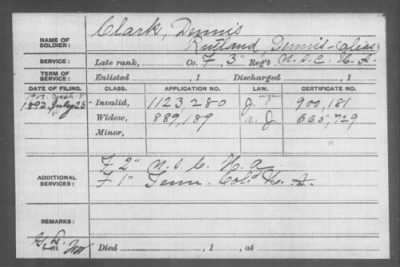 NAME OF SOLDIER: Clark, Dennis
Rutland, Dennis (alias)
SERVICE: Late rank, Co. F, 3" Reg't U.S.C. H.A.
TERM OF SERVICE: Enlisted , 1 Discharged , 1
DATE OF FILING. CLASS. APPLICATION NO. LAW. CERTIFICATE NO.
1892 July 25 Invalid, 1123,280 J. 900,181
Widow, 889,189 a. J 665,729
Minor,
ADDITIONAL SERVICES: F 2" U.S.C. H.A.
F 1" Tenn. Col'd H. A.
REMARKS:
Died , 1 , at